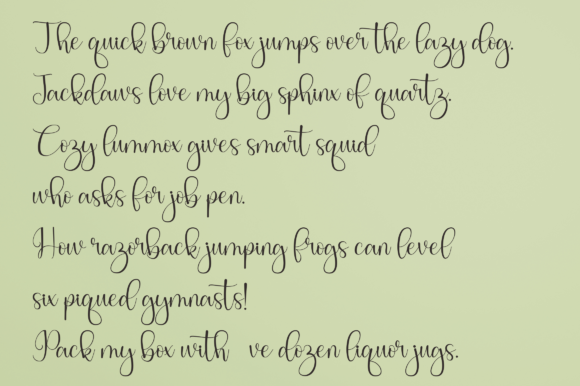 The quick brown fox jumps over the lazy dog.
Jackdaws love my big sphinx of quartz.
Cozy lummox gives smart squid
who asks for job pen.
How razorback jumping frogs can level
six piqued gymnasts!
Pack my box with ve dozen liquor jugs.